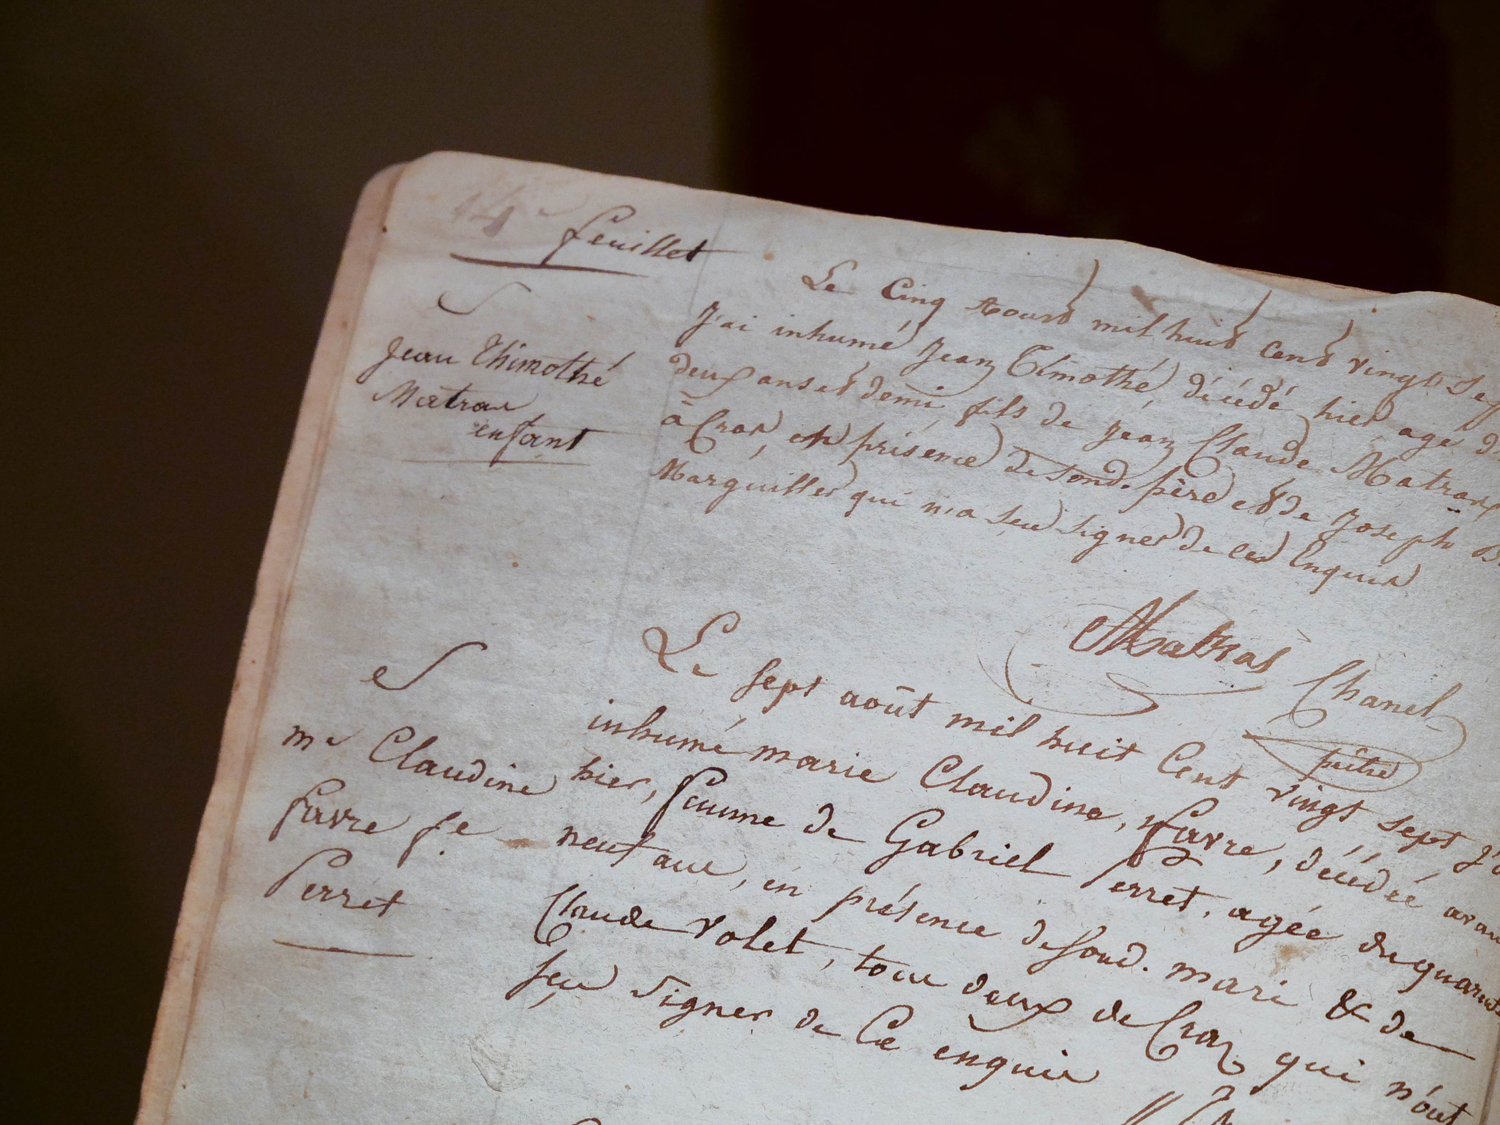 14e feuillet
Jean Thimothé
Matras
enfant
Le Cinq aoust mil huit Cent vingt sep
J'ai inhumé Jean Timothé, décédé hier agé d
deux ans et demi, fils de jean Claude Matras
à Cras, en présence de sond. père et de Joseph
Marguiller qui n'a seu signer de ces Enquis
Matras Chanel
prêtre
me Claudine
favre fe
Perret
Le sept août mil huit Cent vingt sept j'
inhumé marie Claudine, favre, décédée avan
hier, faume de Gabriel Perret, agée de quarante
neuf ans, en présence de sond. mari & de
Claude volet, tous deux de Craz qui n'out
seu signer de Ce enquis